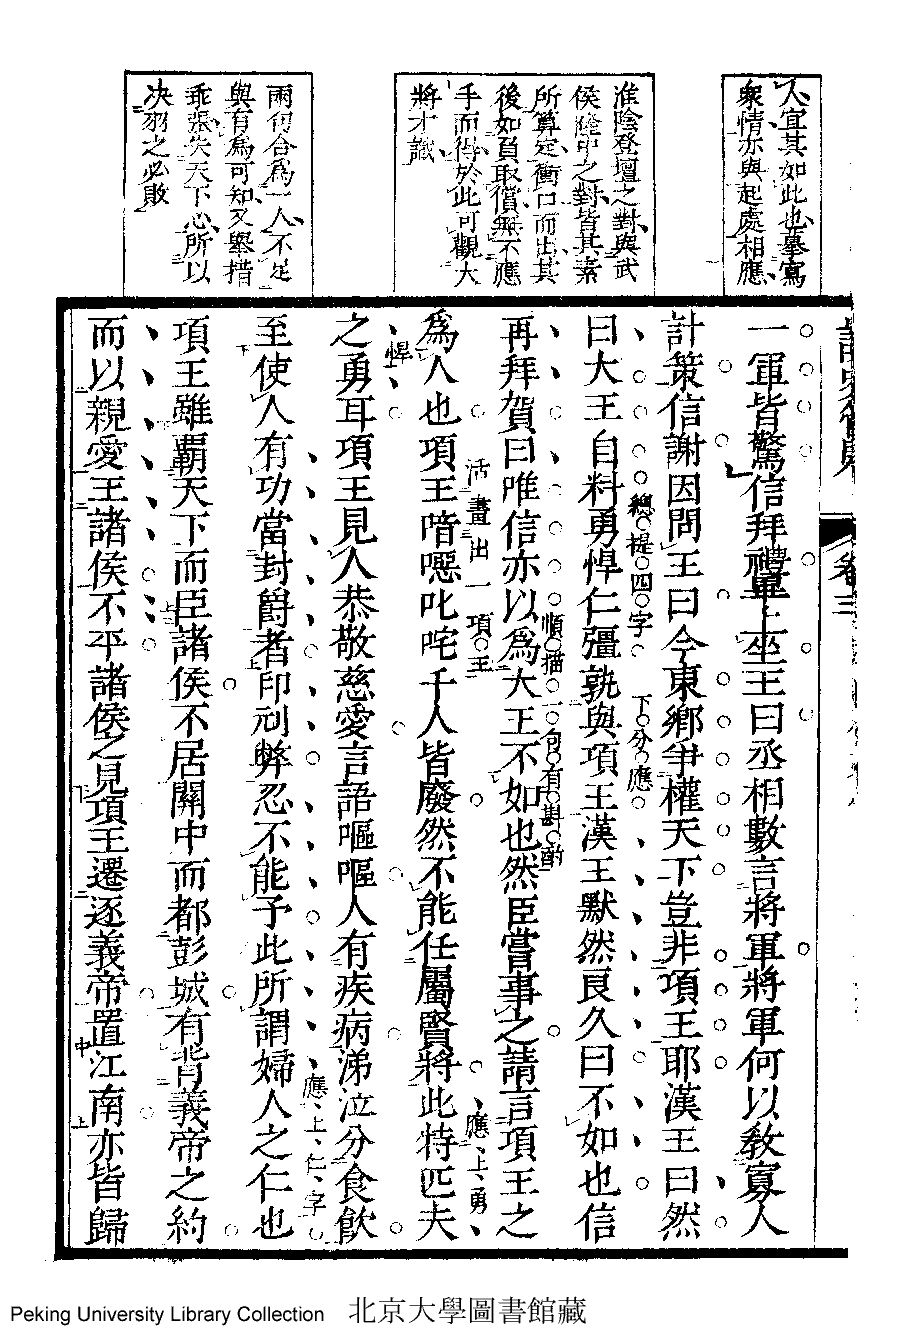 人宜其如此也摹寫
衆情亦與起處相應
淮陰登壇之對與武
侯隆中之對皆其素
所算定衝口而出其
後如負取償無不應
手而得於此可觀大
將才識
兩句合爲一人不足
與有爲可知又舉措
乖張失天下心所以
决羽之必敗
一軍皆驚信拜禮畢上坐王曰丞相數言將軍將軍何以教寡人
計策信謝因問王曰今東鄉爭權天下豈非項王耶漢王曰然
總提四字
下分應
曰大王自料勇悍仁彊孰與項王漢王默然良久曰不如也信
順描一句有斟酌
再拜賀曰唯信亦以爲大王不如也然臣嘗事之請言項王之
活畫出一項王
應上勇
爲人也項王喑噁叱咤千人皆廢然不能任屬賢將此特匹夫
悍
之勇耳項王見人恭敬慈愛言語嘔嘔人有疾病涕泣分食飲
應上仁字
至使人有功當封爵者印刓弊忍不能予此所謂婦人之仁也
項王雖覇天下而臣諸侯不居關中而都彭城有背義帝之約
而以親愛王諸侯不平諸侯之見項王遷逐義帝置江南亦皆歸
卷三
Peking University Library Collection 北京大學圖書館藏